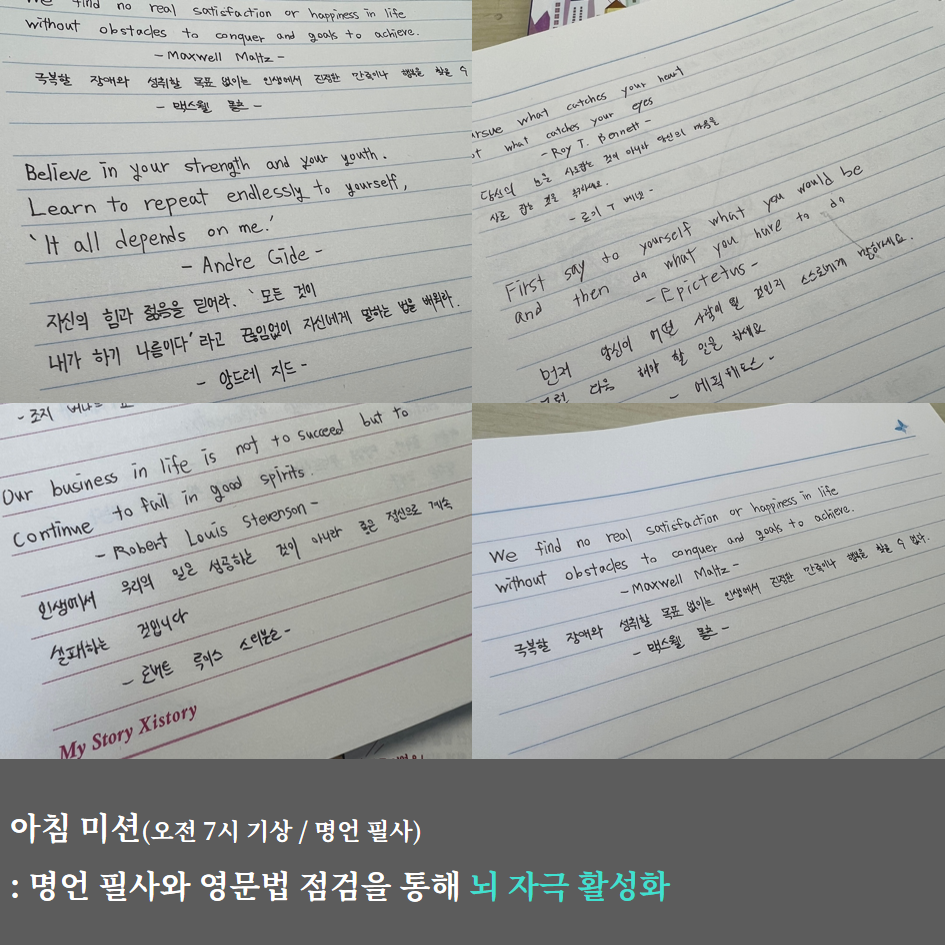 We find no real satisfaction or happiness in life
without obstacles to conquer and goals to achieve.
- Maxwell Maltz -
극복할 장애와 성취할 목표 없이는 인생에서 진정한 만족이나 행복을 찾을 수
- 맥스웰 몰츠 -
Believe in your strength and your youth.
Learn to repeat endlessly to yourself,
'It all depends on me.'
- Andre Gide -
자신의 힘과 젊음을 믿어라. '모든 것이
내가 하기 나름이다'라고 끊임없이 자신에게 말하는 법을 배워라.
- 앙드레 지드 -
what catches your heart
what catches your eyes
- Roy T. Bennett -
당신의 눈을 사로잡는 것이 아니라 당신의 마음을
사로잡는 것을 추구하세요.
- 로이 T 베넷 -
First say to yourself what you would be
and then do what you have to do
- Epictetus -
먼저 당신이 어떤 사람이 될 것인지 스스로에게 말하세요.
그런 다음 해야 할 일을 하세요
- 에픽테토스 -
- 조지 버나드 쇼
Our business in life is not to succeed but to
continue to fail in good spirits.
- Robert Louis Stevenson -
인생에서 우리의 일은 성공하는 것이 아니라 좋은 정신으로 계속
실패하는 것입니다
- 로버트 루이스 스티븐슨 -
My Story Xistory
We find no real satisfaction or happiness in life
without obstacles to conquer and goals to achieve.
- Maxwell Maltz -
극복할 장애와 성취할 목표 없이는 인생에서 진정한 만족이나 행복을 찾을 수 없다.
- 맥스웰 몰츠 -
아침 미션(오전 7시 기상 / 명언 필사)
: 명언 필사와 영문법 점검을 통해 뇌 자극 활성화